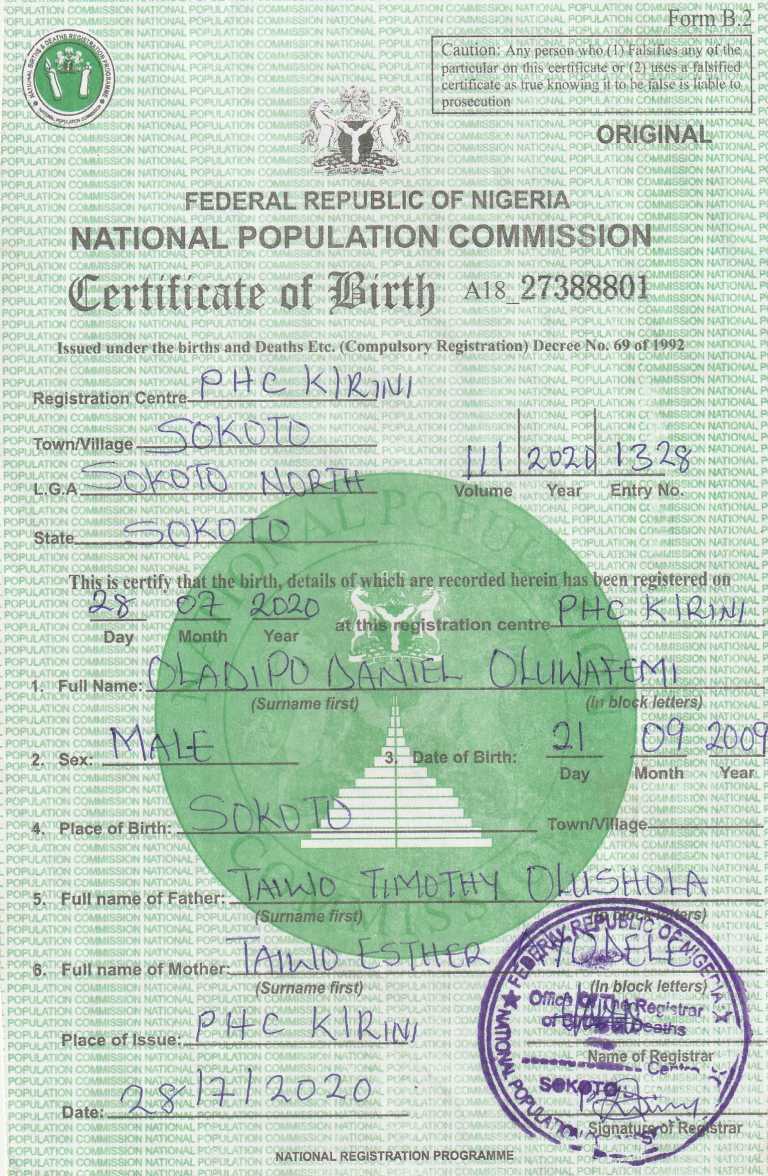 Form B.2
Caution: Any person who (1) Falsifies any of the
particular on this certificate or (2) uses a falsified
certificate as true knowing it to be false is liable to
prosecution
NATIONAL BIRTHS & DEATHS REGISTRATION PROGRAMME
NATIONAL POPULATION COMMISSION
ORIGINAL
FEDERAL REPUBLIC OF NIGERIA
NATIONAL POPULATION COMMISSION
Certificate of Birth A18_27388801
Issued under the births and Deaths Etc. (Compulsory Registration) Decree No. 69 of 1992
Registration Centre PHC KIRINI
Town/Village SOKOTO
L.G.A SOKOTO NORTH
111 2020 1328
Volume Year Entry No.
State SOKOTO
This is certify that the birth, details of which are recorded herein has been registered on
28 07 2020 at this registration centre PHC KIRINI
Day Month Year
1. Full Name: OLADIPO DANIEL OLUWAFEMI
(Surname first) (In block letters)
2. Sex: MALE 3. Date of Birth: 21 09 2009
Day Month Year
4. Place of Birth: SOKOTO Town/Village
5. Full name of Father: TAIWO TIMOTHY OLUSHOLA
(Surname first) (In block letters)
6. Full name of Mother: TAIWO ESTHER
(Surname first) (In block letters)
Place of Issue: PHC KIRINI
Name of Registrar
Date: 28/7/2020
Signature of Registrar
FEDERAL REPUBLIC OF NIGERIA
Office Of The Registrar
of Births Deaths
Centre
SOKOTO
NATIONAL POPULATION
NATIONAL REGISTRATION PROGRAMME